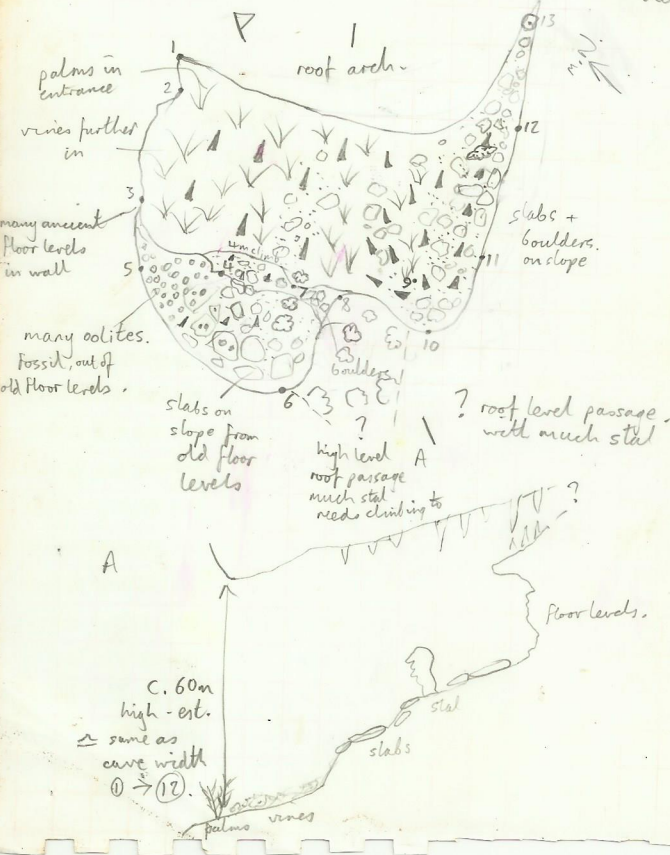 P
1
13
roof arch.
m.N.
palms in
entrance
2
vines further
in
12
3
many ancient
floor levels
in wall
slabs +
boulders.
on slope
4m climb
4
5
7
8
9
11
10
many oolites.
Fossil, out of
old floor levels.
boulders
6
slabs on
slope from
old floor
levels
?
high level
roof passage
much stal
needs climbing to
A
? roof level passage.
with much stal
?
A
floor levels.
c. 60m
high - est.
≏ same as
cave width
① → ⑫.
stal
slabs
palms
vines